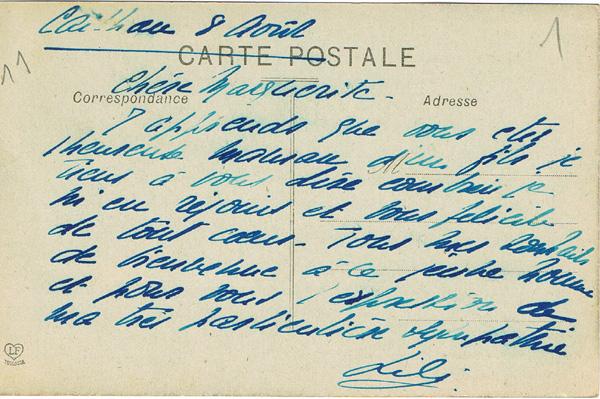 8 Août
1
11
CARTE POSTALE
Chère Marguerite -
Correspondance
Adresse
J'apprends que vous êtes
l'heureuse maman d'un fils. je
tiens à vous dire combien je
m'en réjouis et vous félicite
de tout coeur - Tous mes souhaits
de bienvenue à ce jeune homme
et pour vous l'expression de
ma très particulière sympathie
Lily.
LF
TOULOUSE